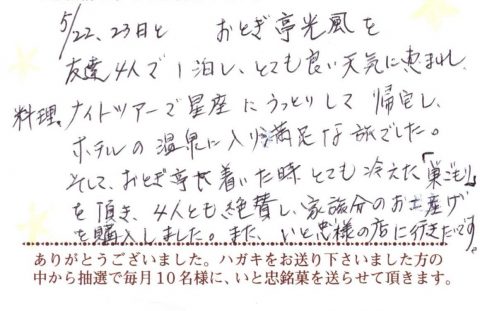 5/22、23日と おとぎ亭光風を
友達4人で1泊し、とても良い天気に恵まれ、
料理、ナイトツアーで星座にうっとりして帰宅し、
ホテルの温泉に入り満足な旅でした。
そして、おとぎ亭に着いた時とても冷えた「巣ごもり」
を頂き、4人とも絶賛し、家族分のお土産げ
を購入しました。また、いと忠様の店に行きたいです。
ありがとうございました。ハガキをお送り下さいました方の
中から抽選で毎月10名様に、いと忠銘菓を送らせて頂きます。